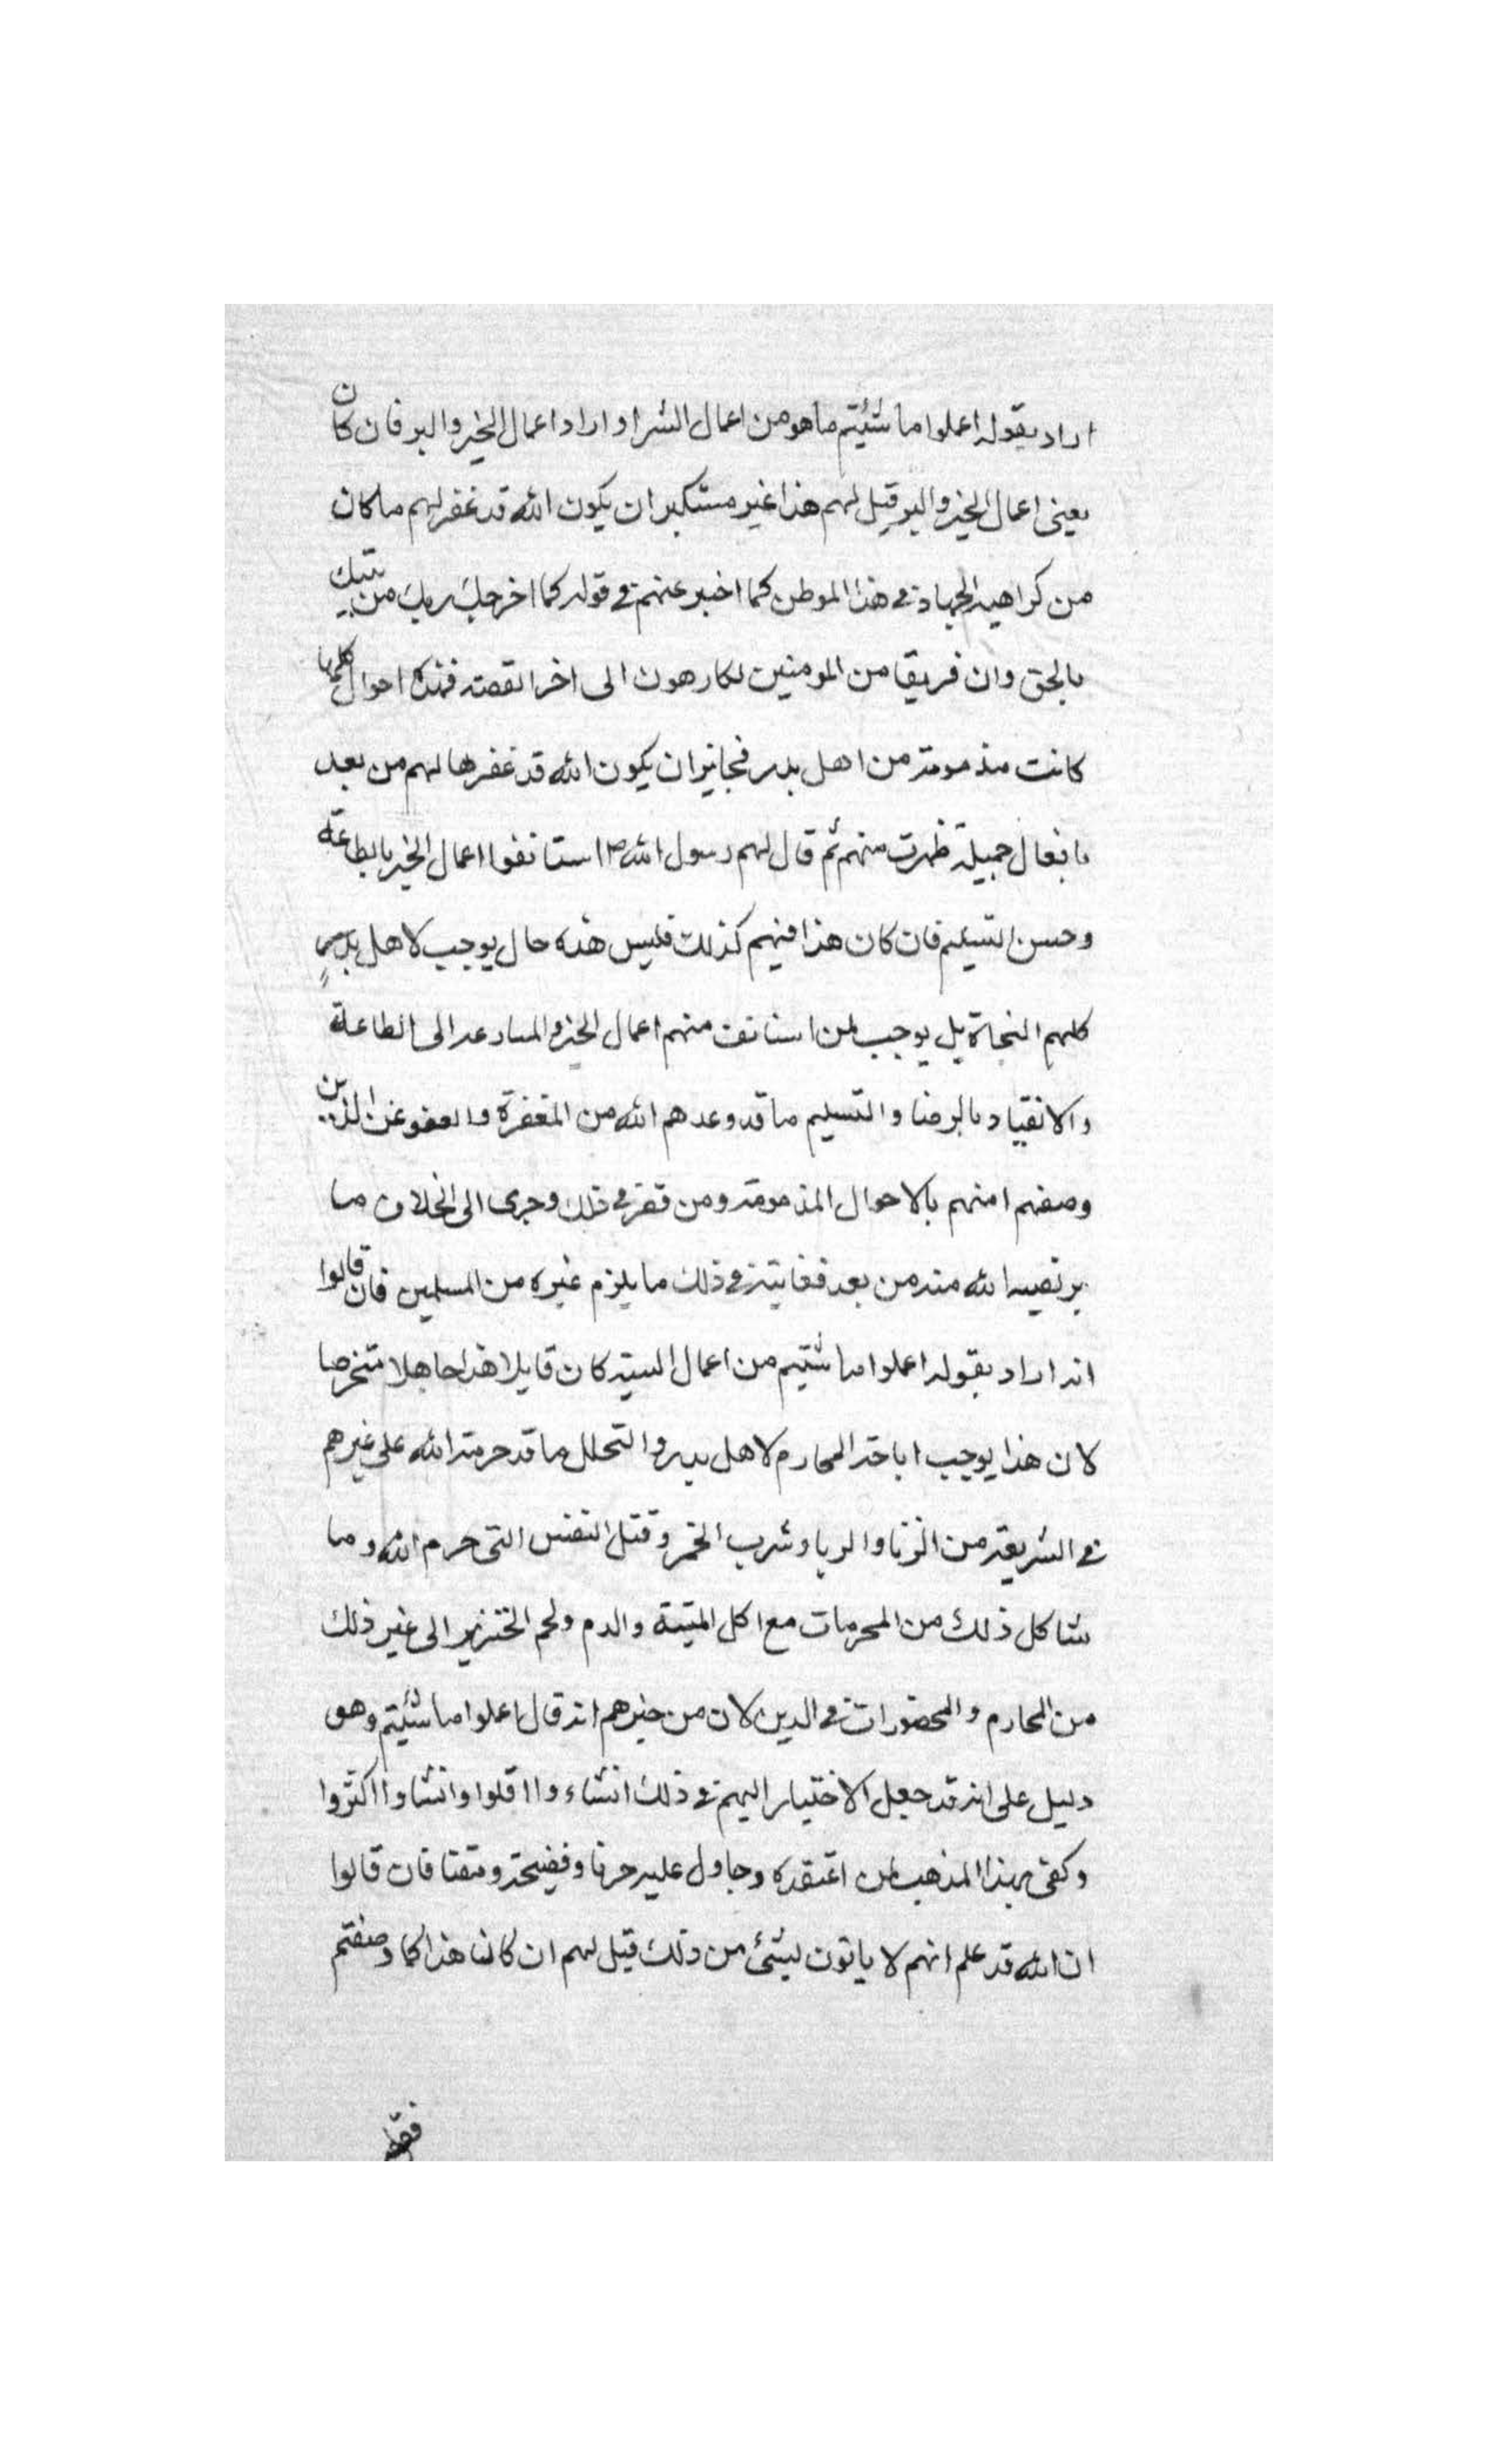 اراد بقوله اعملوا ما شئتم ما هو من اعمال الشر او اراد اعمال الخير والبر فان كان
يعنى اعمال الخير والبر قيل لهم هذا غير مستنكر ان يكون الله قد غفر لهم ما كان
من كراهية الجهاد فى هذا الموطن كما اخبر عنهم فى قوله كما اخرجك ربك من بيتك
بالحق وان فريقا من المومنين لكارهون الى اخر القصة فهذه احوال كلها
كانت مذمومة من اهل بدر فجايز ان يكون الله قد غفرها لهم من بعد
بافعال جميلة ظهرت منهم ثم قال لهم رسول الله ص استانفوا اعمال الخير بالطاعة
وحسن التسليم فان كان هذا فيهم كذلك فليس هذه حال يوجب لاهل بدر
كلهم النجاة بل يوجب لمن استانف منهم اعمال الخير والمسارعة الى الطاعة
والانقياد بالرضا والتسليم ما قد وعدهم الله من المغفرة والعفو عن الذين
وصفهم امنهم بالاحوال المذمومة ومن قصر فى ذلك وجرى الى الخلاف ما
يرتضيه الله منه من بعد فغايته فى ذلك ما يلزم غيره من المسلمين فان قالوا
انه اراد بقوله اعملوا ما شئتم من اعمال السيئة كان قايلا هذا جاهلا متخرصا
لان هذا يوجب اباحة المحارم لاهل بدر والتحلل ما قد حرمه الله على غيرهم
فى الشريعة من الزنا والربا وشرب الخمر وقتل النفس التى حرم الله وما
شاكل ذلك من المحرمات مع اكل الميتة والدم ولحم الخنزير الى غير ذلك
من المحارم والمحضورات فى الدين لان من خبرهم انه قال اعملوا ما شئتم وهو
دليل على انه قد جعل الاختيار اليهم فى ذلك انشاء وا اقلوا وانشاوا اكثروا
وكفى بهذا المذهب لمن اعتقده وجاول عليه خزيا وفضيحة ومقتا فان قالوا
ان الله قد علم انهم لا ياتون بشئ من ذلك قيل لهم ان كان هذا كما وصفتم